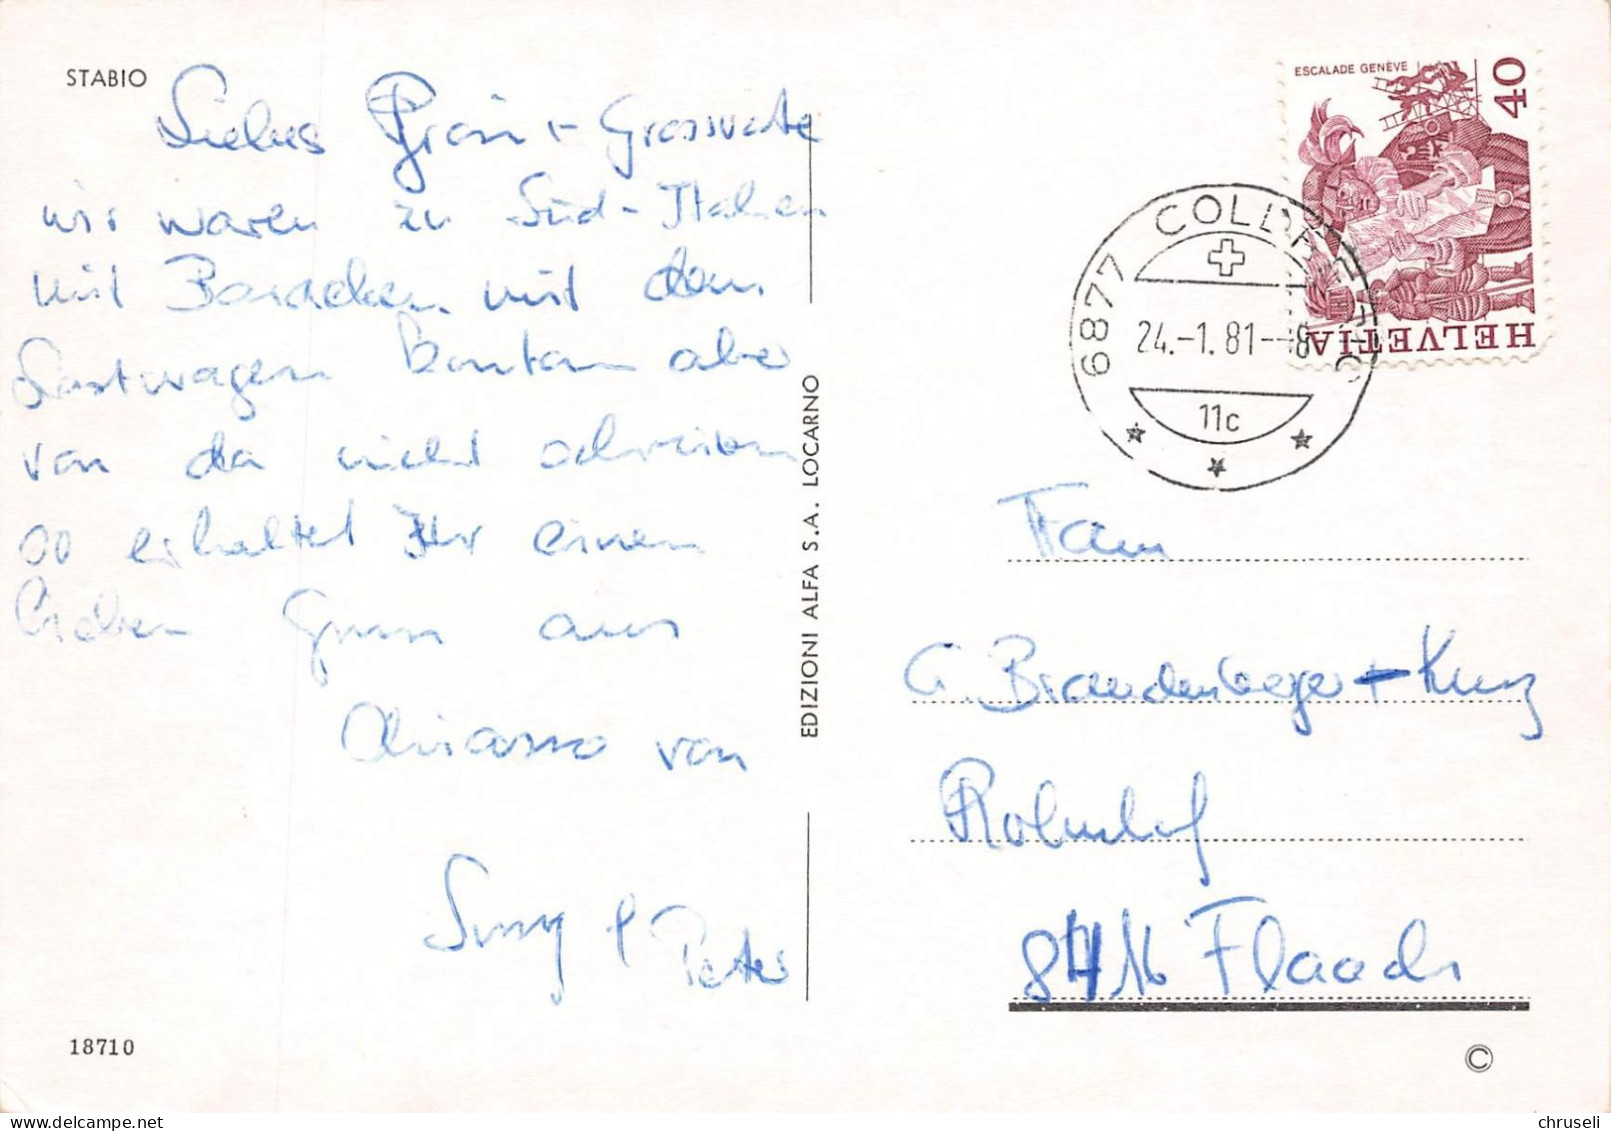 STABIO
Liebes Grosi + Grossvater
wir waren in Süd-Italien
mit Baracken mit dem
Lastwagen konnten aber
von da nicht schreiben
so erhaltet Ihr einen
lieben Gruss aus
Chiasso von
Susy & Peter
18710
EDIZIONI ALFA S.A. LOCARNO
ESCALADE GENÈVE
40
HELVETIA
6877 COLDRERIO
24.-1.81--8
11c
Fam
G. Brandenberger + Kunz
8416 Flaach
©
chruseli